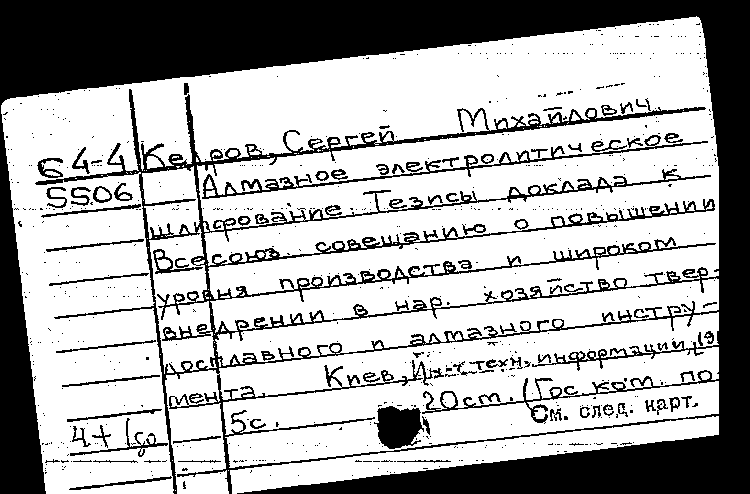 64-4 Кедров, Сергей Михайлович.
5506 Алмазное электролитическое
шлифование. Тезисы доклада к
Всесоюз. совещанию о повышении
уровня производства и широком
внедрении в нар. хозяйство твер-
досплавного и алмазного инстру-
мента. Киев, Ин-т техн. информации,
5с. 20см. (Гос. ком. по
4+1
См. след. карт.